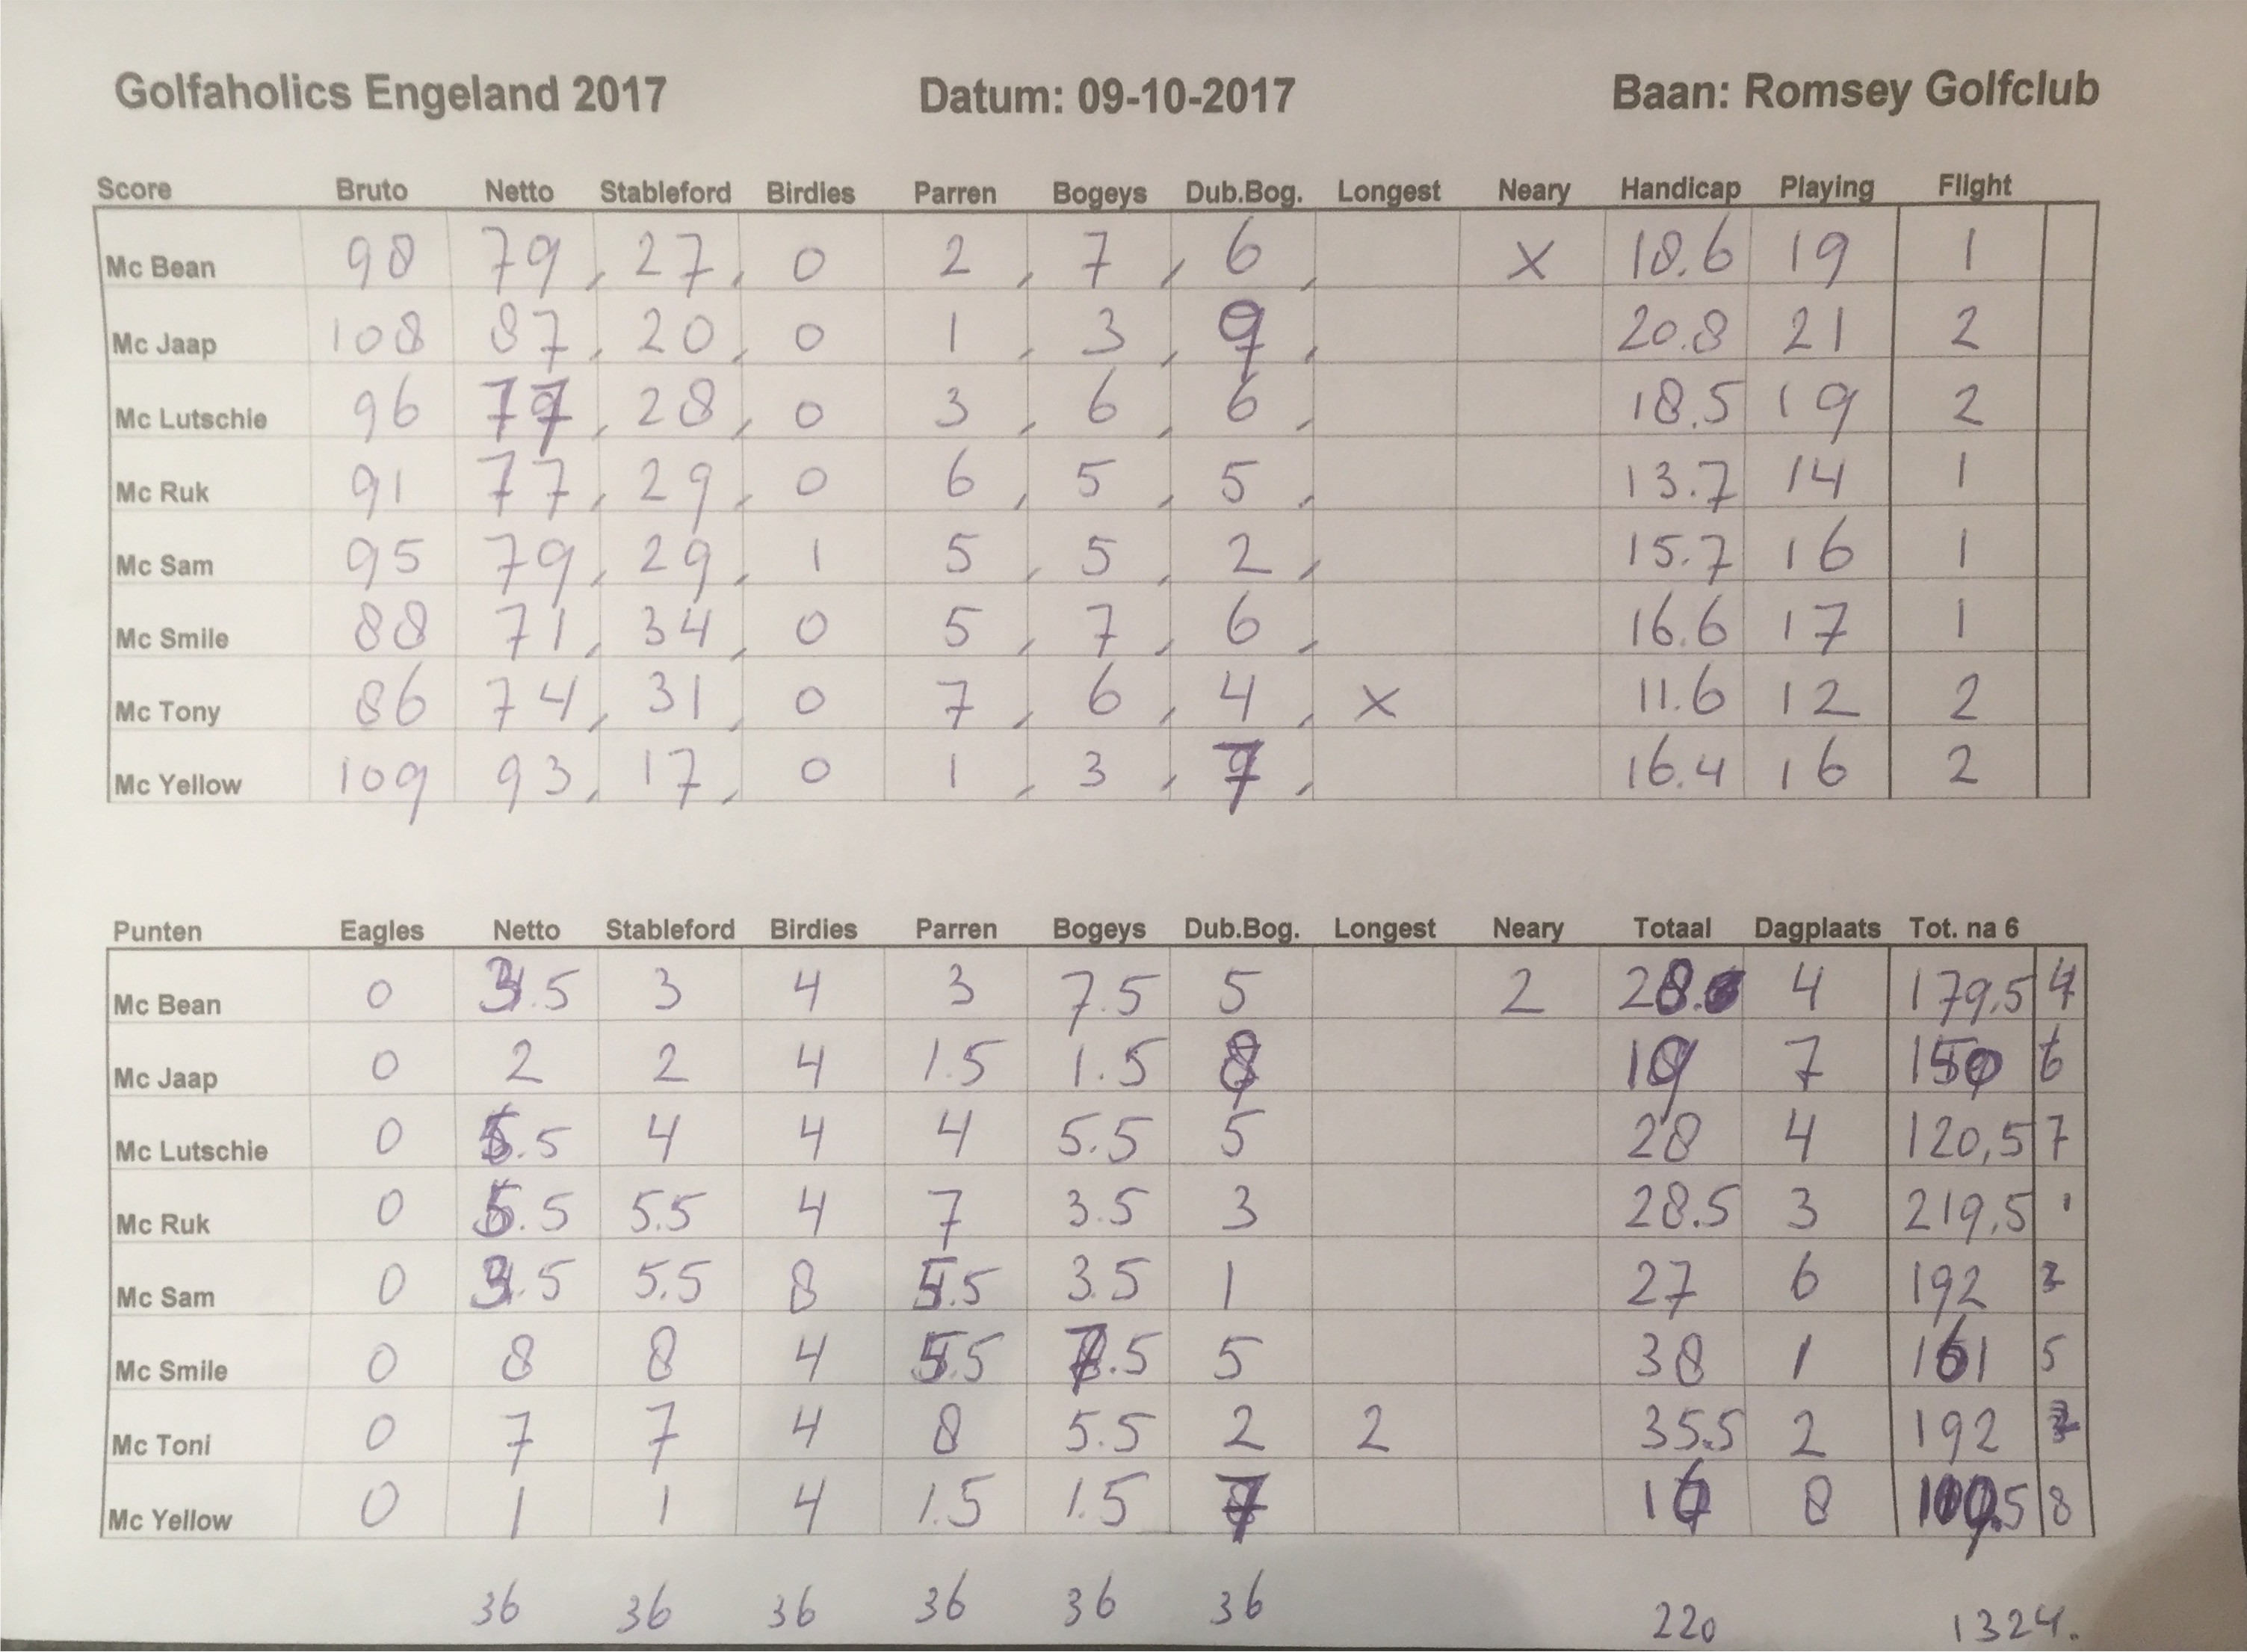 Golfaholics Engeland 2017 Datum: 09-10-2017 Baan: Romsey Golfclub
Score Bruto Netto Stableford Birdies Parren Bogeys Dub.Bog. Longest Neary Handicap Playing Flight
Mc Bean 98 79 27 0 2 7 6 x 18.6 19 1
Mc Jaap 108 87 20 0 1 3 9 20.8 21 2
Mc Lutschie 96 77 28 0 3 6 6 18.5 19 2
Mc Ruk 91 77 29 0 6 5 5 13.7 14 1
Mc Sam 95 79 29 1 5 5 2 15.7 16 1
Mc Smile 88 71 34 0 5 7 6 16.6 17 1
Mc Tony 86 74 31 0 7 6 4 x 11.6 12 2
Mc Yellow 109 93 17 0 1 3 7 16.4 16 2
Punten Eagles Netto Stableford Birdies Parren Bogeys Dub.Bog. Longest Neary Totaal Dagplaats Tot. na 6
Mc Bean 0 3.5 3 4 3 7.5 5 2 28 4 179,5 4
Mc Jaap 0 2 2 4 1.5 1.5 8 19 7 150 6
Mc Lutschie 0 5.5 4 4 4 5.5 5 28 4 120,5 7
Mc Ruk 0 5.5 5.5 4 7 3.5 3 28.5 3 219,5 1
Mc Sam 0 3.5 5.5 8 5.5 3.5 1 27 6 192
Mc Smile 0 8 8 4 5.5 7.5 5 38 1 161 5
Mc Toni 0 7 7 4 8 5.5 2 2 35.5 2 192
Mc Yellow 0 1 1 4 1.5 1.5 7 16 8 109.5 8
36 36 36 36 36 36 220 1324.